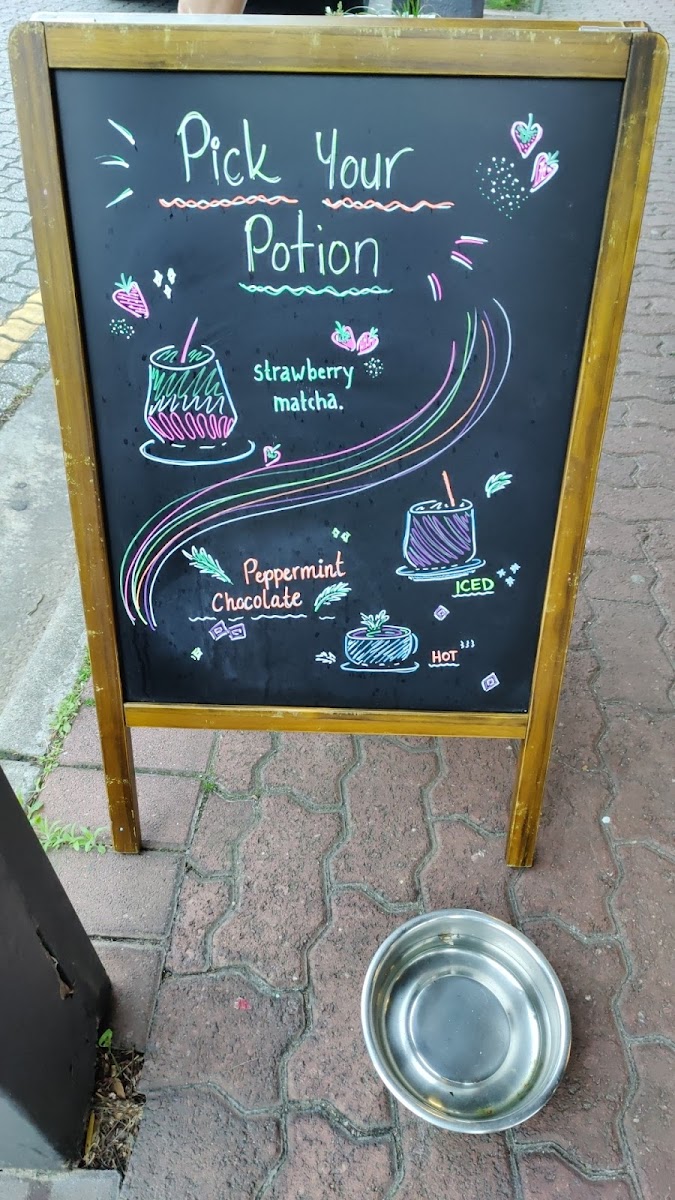 Pick Your
Potion
strawberry
matcha.
Peppermint
Chocolate
ICED
HOT